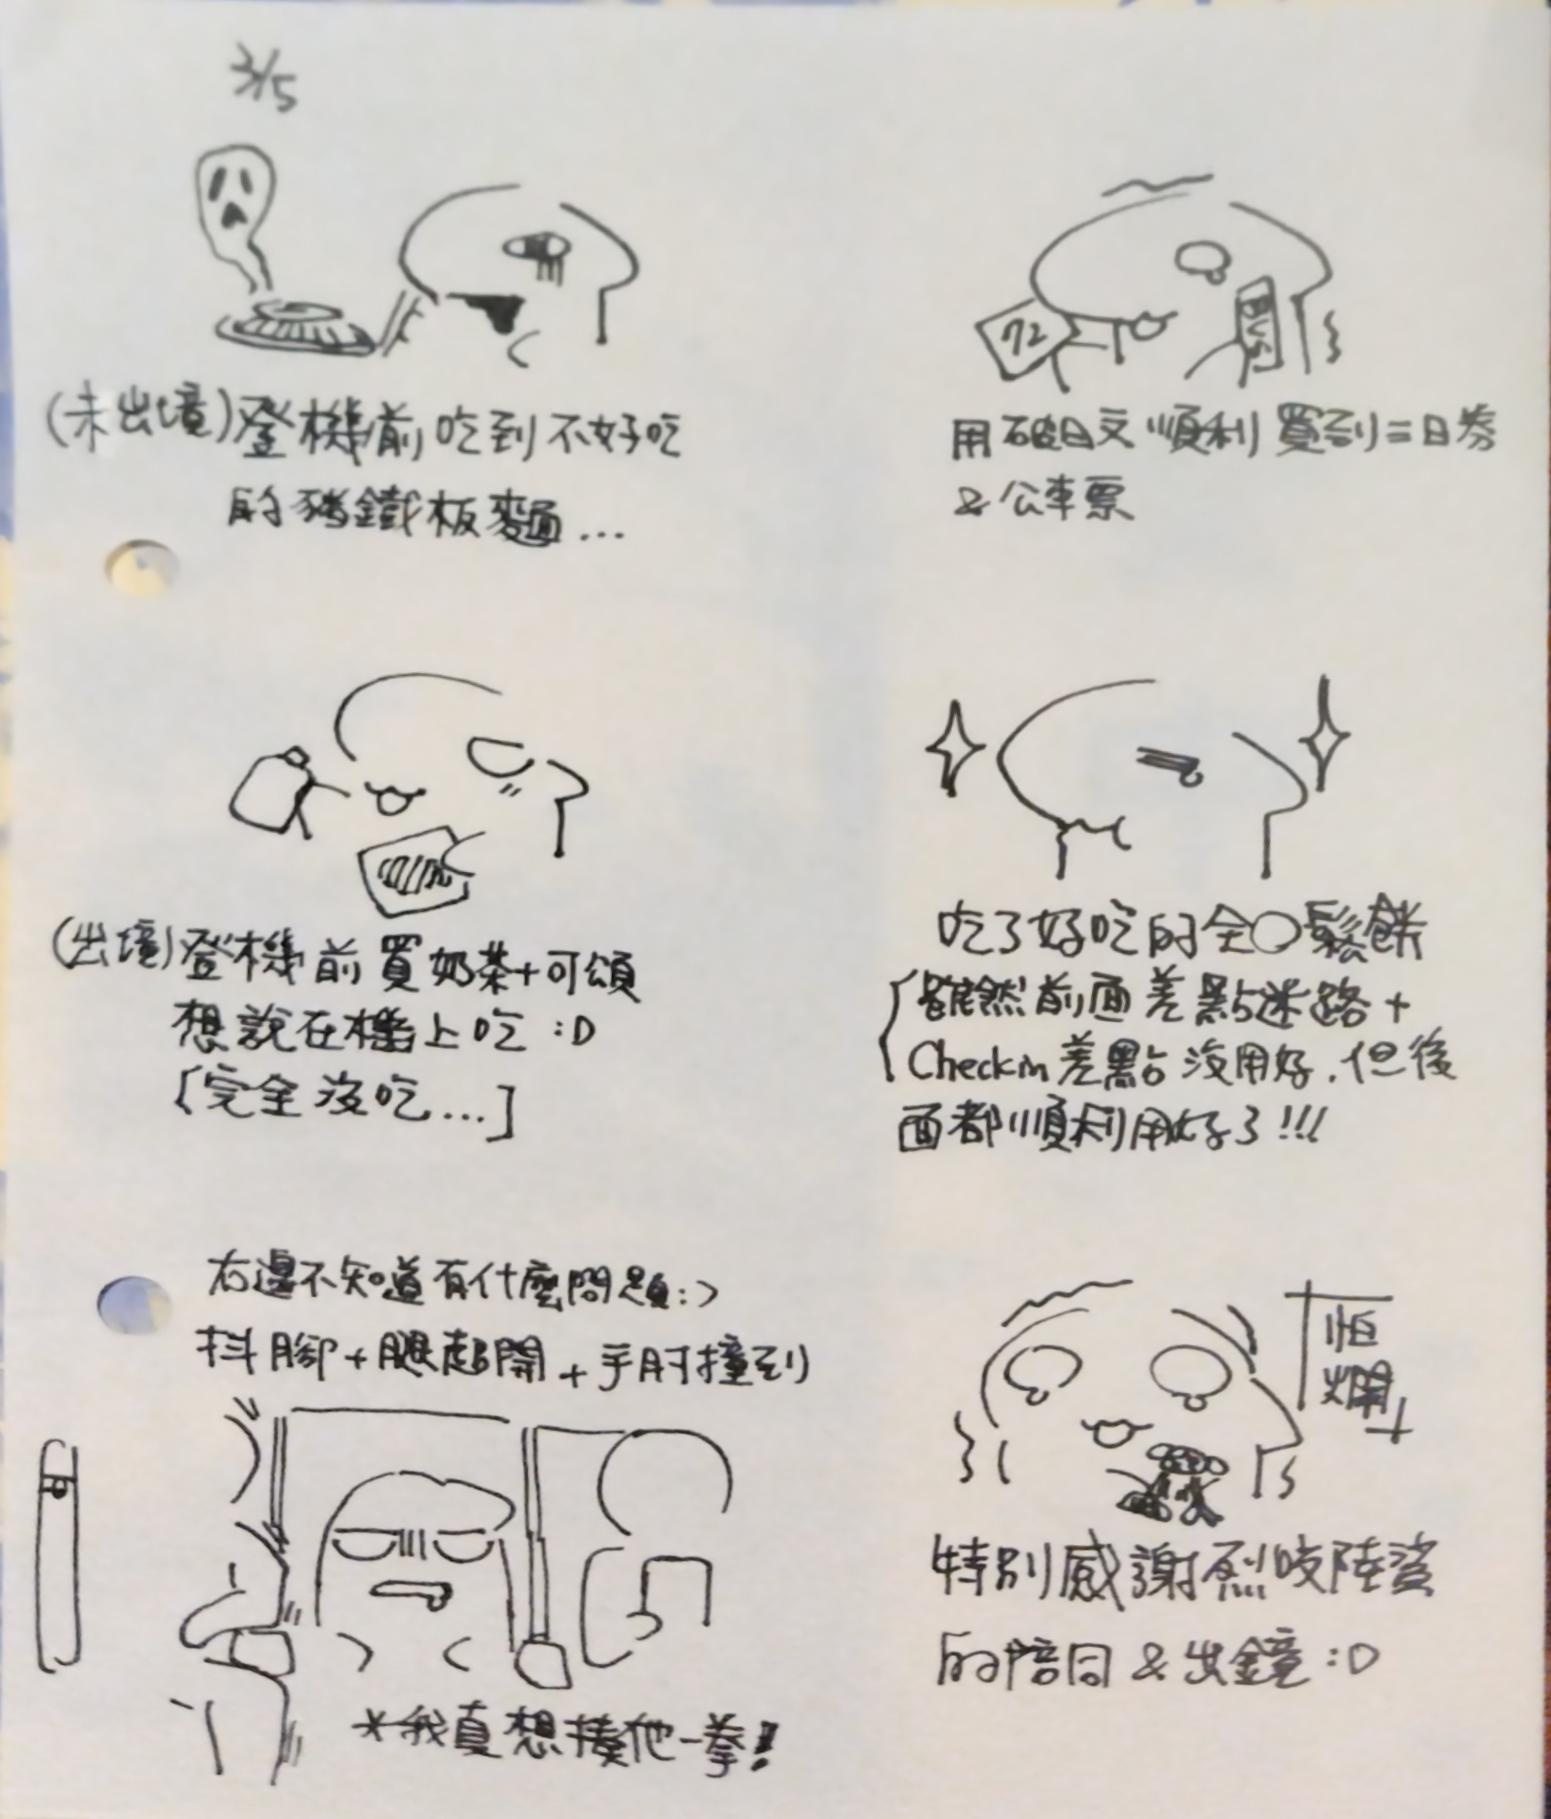 3/5
(未出境)登機前吃到不好吃
的豬鐵板麵...
(出境)登機前買奶茶+可頌
想說在機上吃 :D
[完全沒吃...]
右邊不知道有什麼問題:>
抖腳+腿超開+手肘撞到
*我真想揍他一拳!
72
用破日文順利買到三日券
&公車票
吃了好吃的全〇鬆餅
雖然前面差點迷路+
Checkin差點沒用好,但後
面都順利用好了!!!
恒
爛
特別感謝烈咬陸鯊
的陪同&出鏡:D